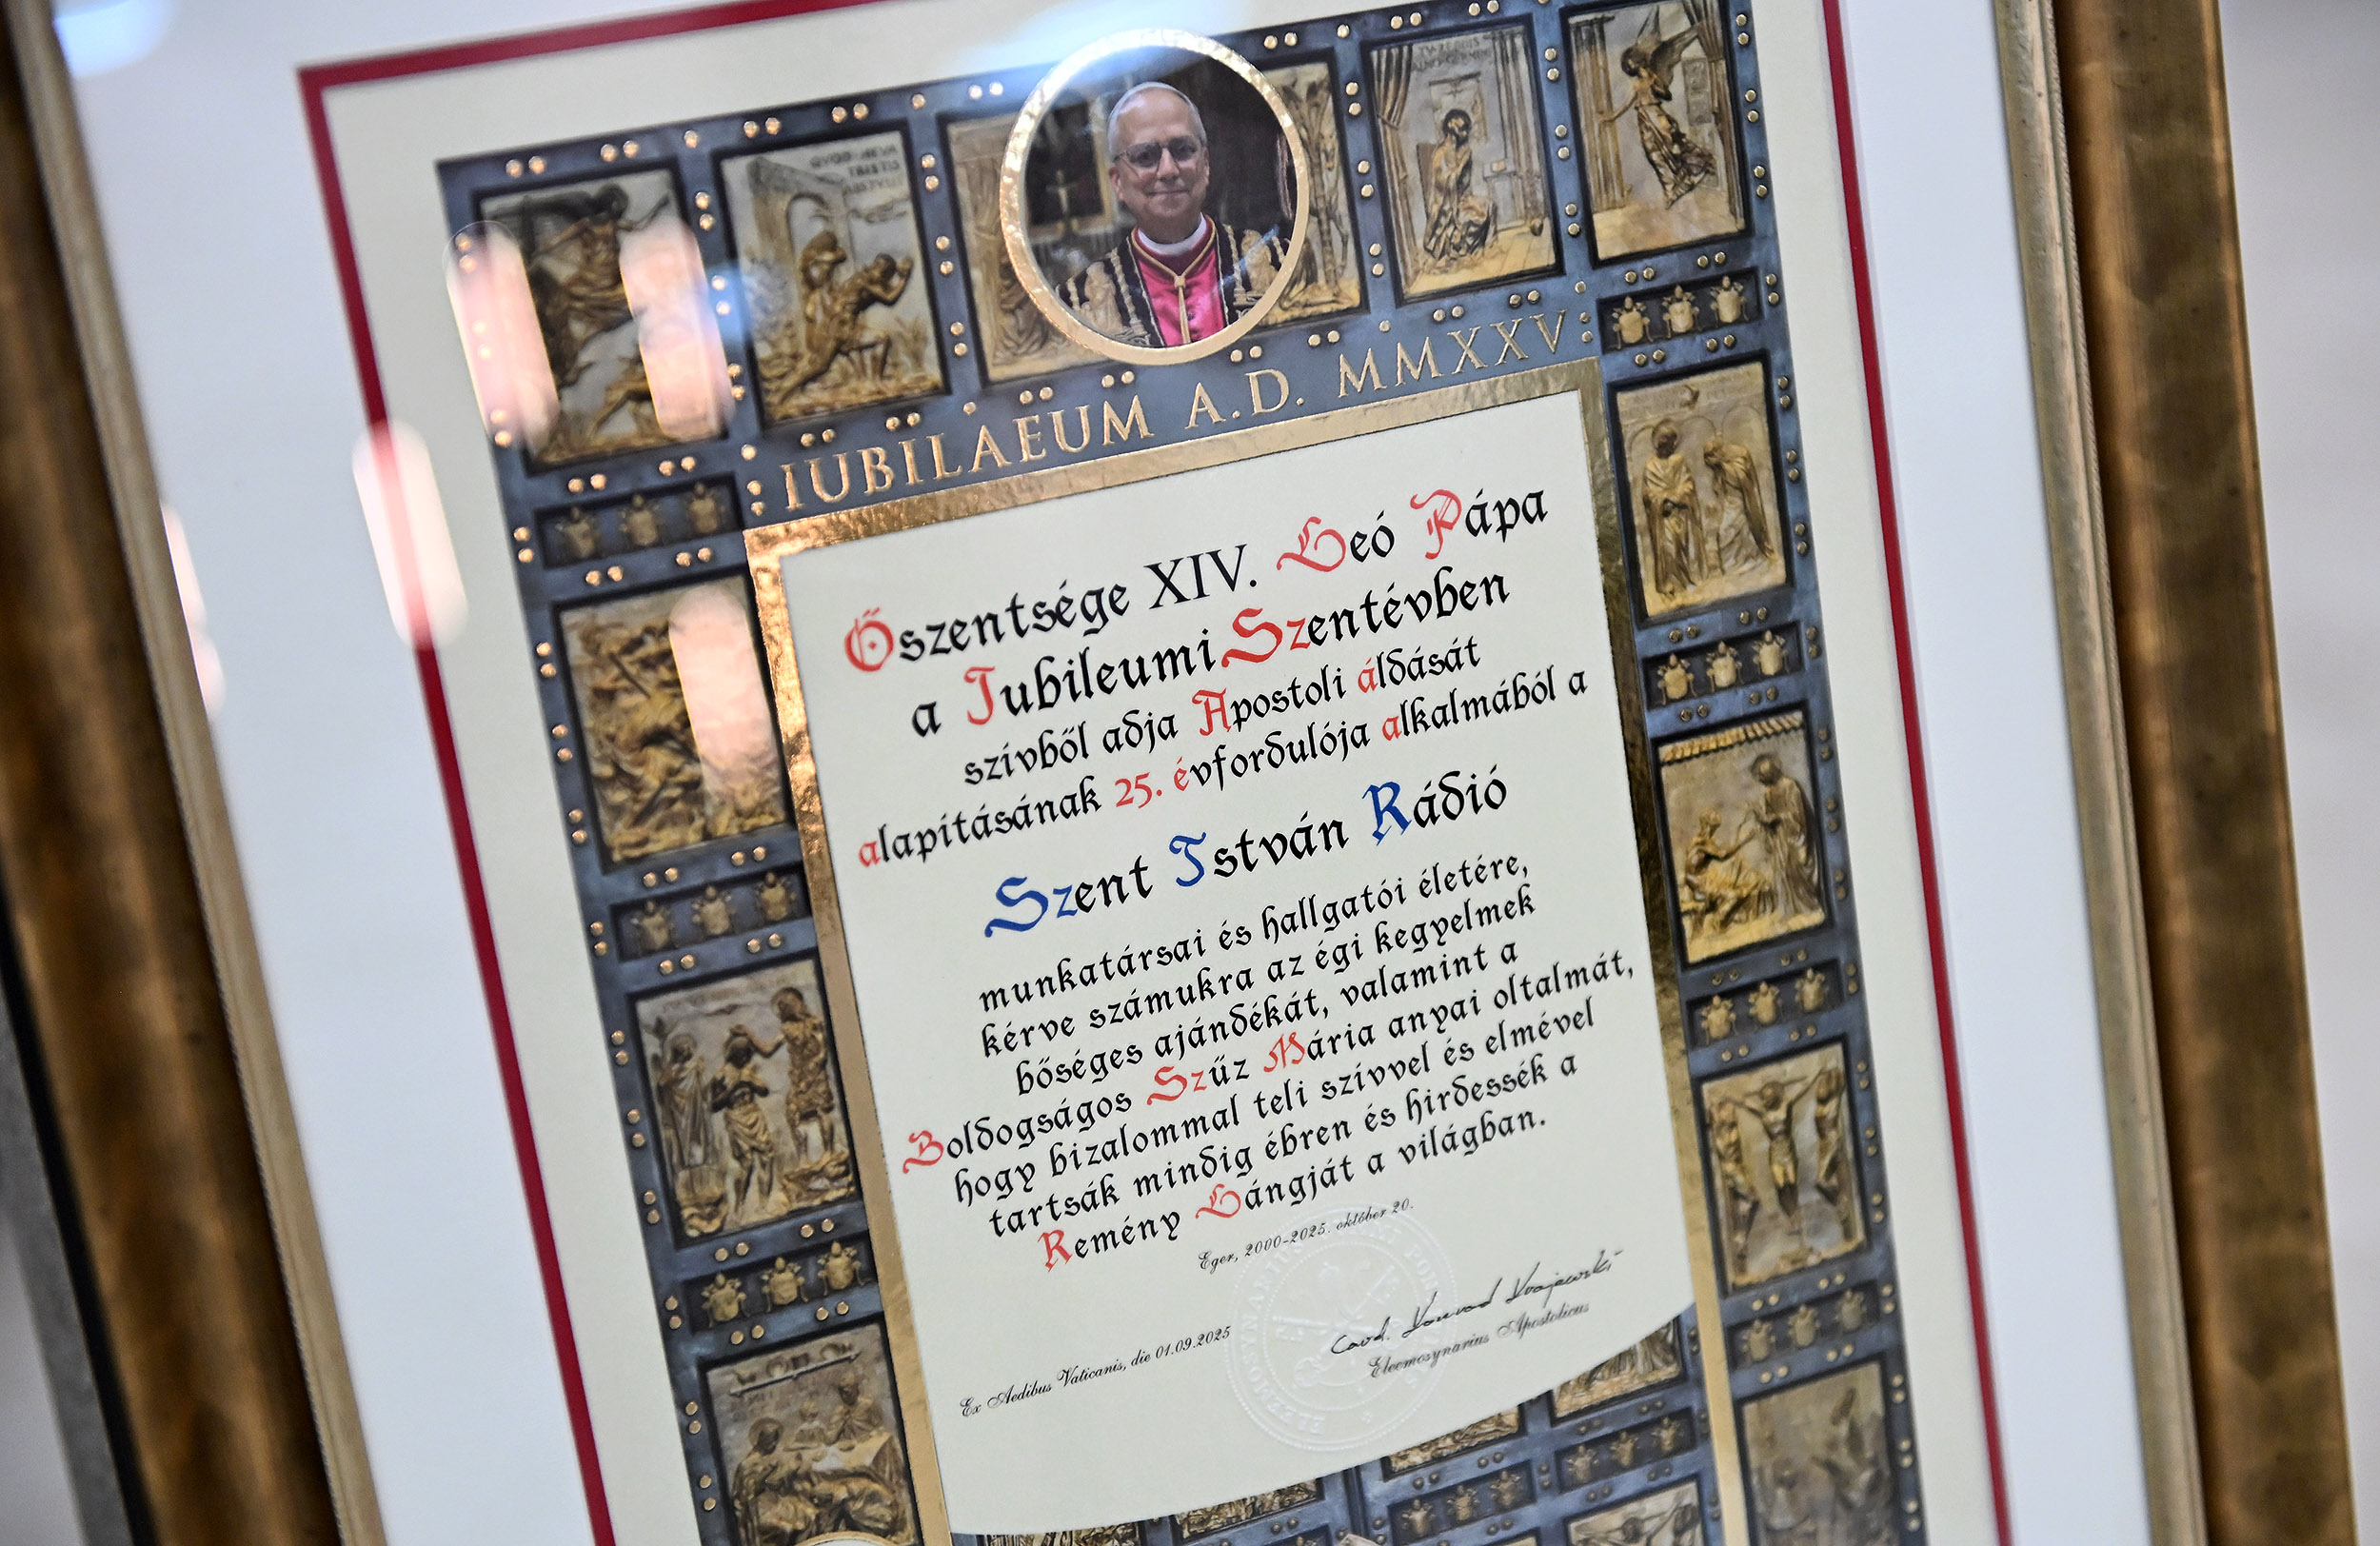 IUBILAEUM A.D. MMXXV
Őszentsége XIV. Leó Pápa
a Jubileumi Szentévben
szívből adja Apostoli áldását
alapításának 25. évfordulója alkalmából a
Szent István Rádió
munkatársai és hallgatói életére,
kérve számukra az égi kegyelmek
bőséges ajándékát, valamint a
Boldogságos Szűz Mária anyai oltalmát,
hogy bizalommal teli szívvel és elmével
tartsák mindig ébren és hirdessék a
Remény Lángját a világban.
Eger, 2000-2025. október 20.
Ex Aedibus Vaticanis, die 01.09.2025
Card. Konrad Krajewski
Eleemosynarius Apostolicus